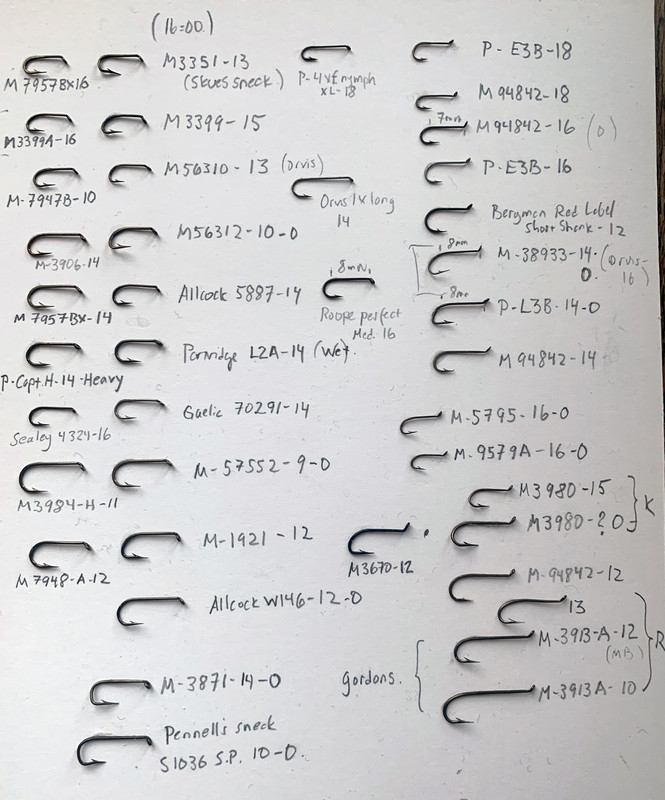 (16=00.)
M7957BX16
M3351-13
(Skues sneck.)
P-4VF nymph
XL-18
P-E3B-18
M94842-18
M3399A-16
M3399-15
7mm
M94842-16 (0)
M-7947B-10
M56310-13 (Orvis)
Orvis 1x long
14
P-E3B-16
Bergman Red Label
short Shank-12
M-3906-14
M56312-10-0
8mm
M-38933-14-(Orvis-
0. 16)
8mm
M7957BX-14
Allcock 5887-14
8mm
Roope perfect
Med. 16
P-L3B-14-0
P-Capt.H-14-Heavy
Partridge L2A-14 (Wet.
M94842-14
Sealey 4324-16
Gaelic 70291-14
M-5795-16-0
M3984-H-11
M-57552-9-0
M-9579A-16-0
M3980-15
M3980-?0
K
M7948-A-12
M-1921-12
M3670-12
M-94842-12
Allcock W146-12-0
13
M-3913-A-12
(MB)
R
M-3871-14-0
gordons.
M-3913A-10
Pennell's sneck
S1036 S.P. 10-0.